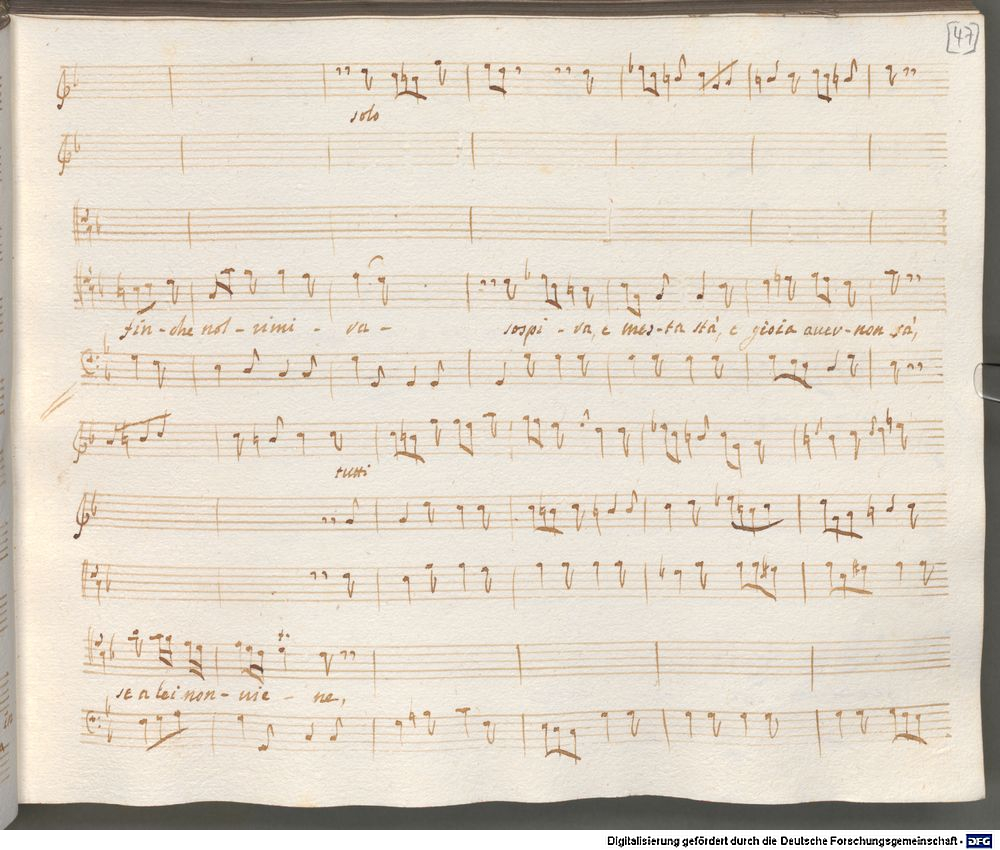 [47]
solo
fin-che nol-rimi-ra-    sospi-ra, e mes-ta stà, e gioia aver-non sà,
tutti
t.
se a lei non-vie-ne,
Digitalisierung gefördert durch die Deutsche Forschungsgemeinschaft - DFG